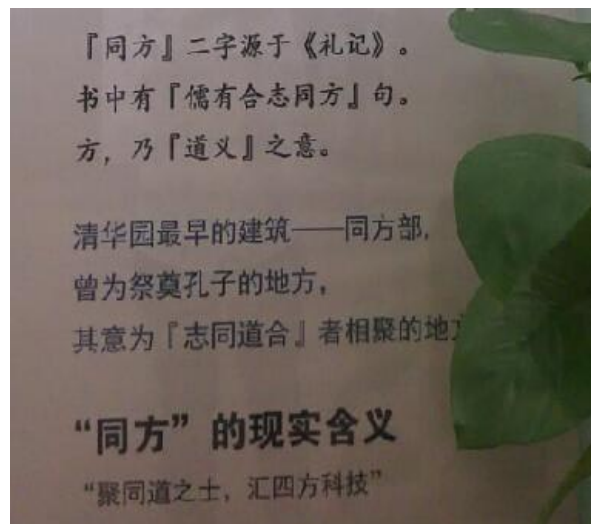 『同方』二字源于《礼记》。
书中有『儒有合志同方』句。
方，乃『道义』之意。
清华园最早的建筑——同方部，
曾为祭奠孔子的地方，
其意为『志同道合』者相聚的地
“同方”的现实含义
“聚同道之士，汇四方科技”